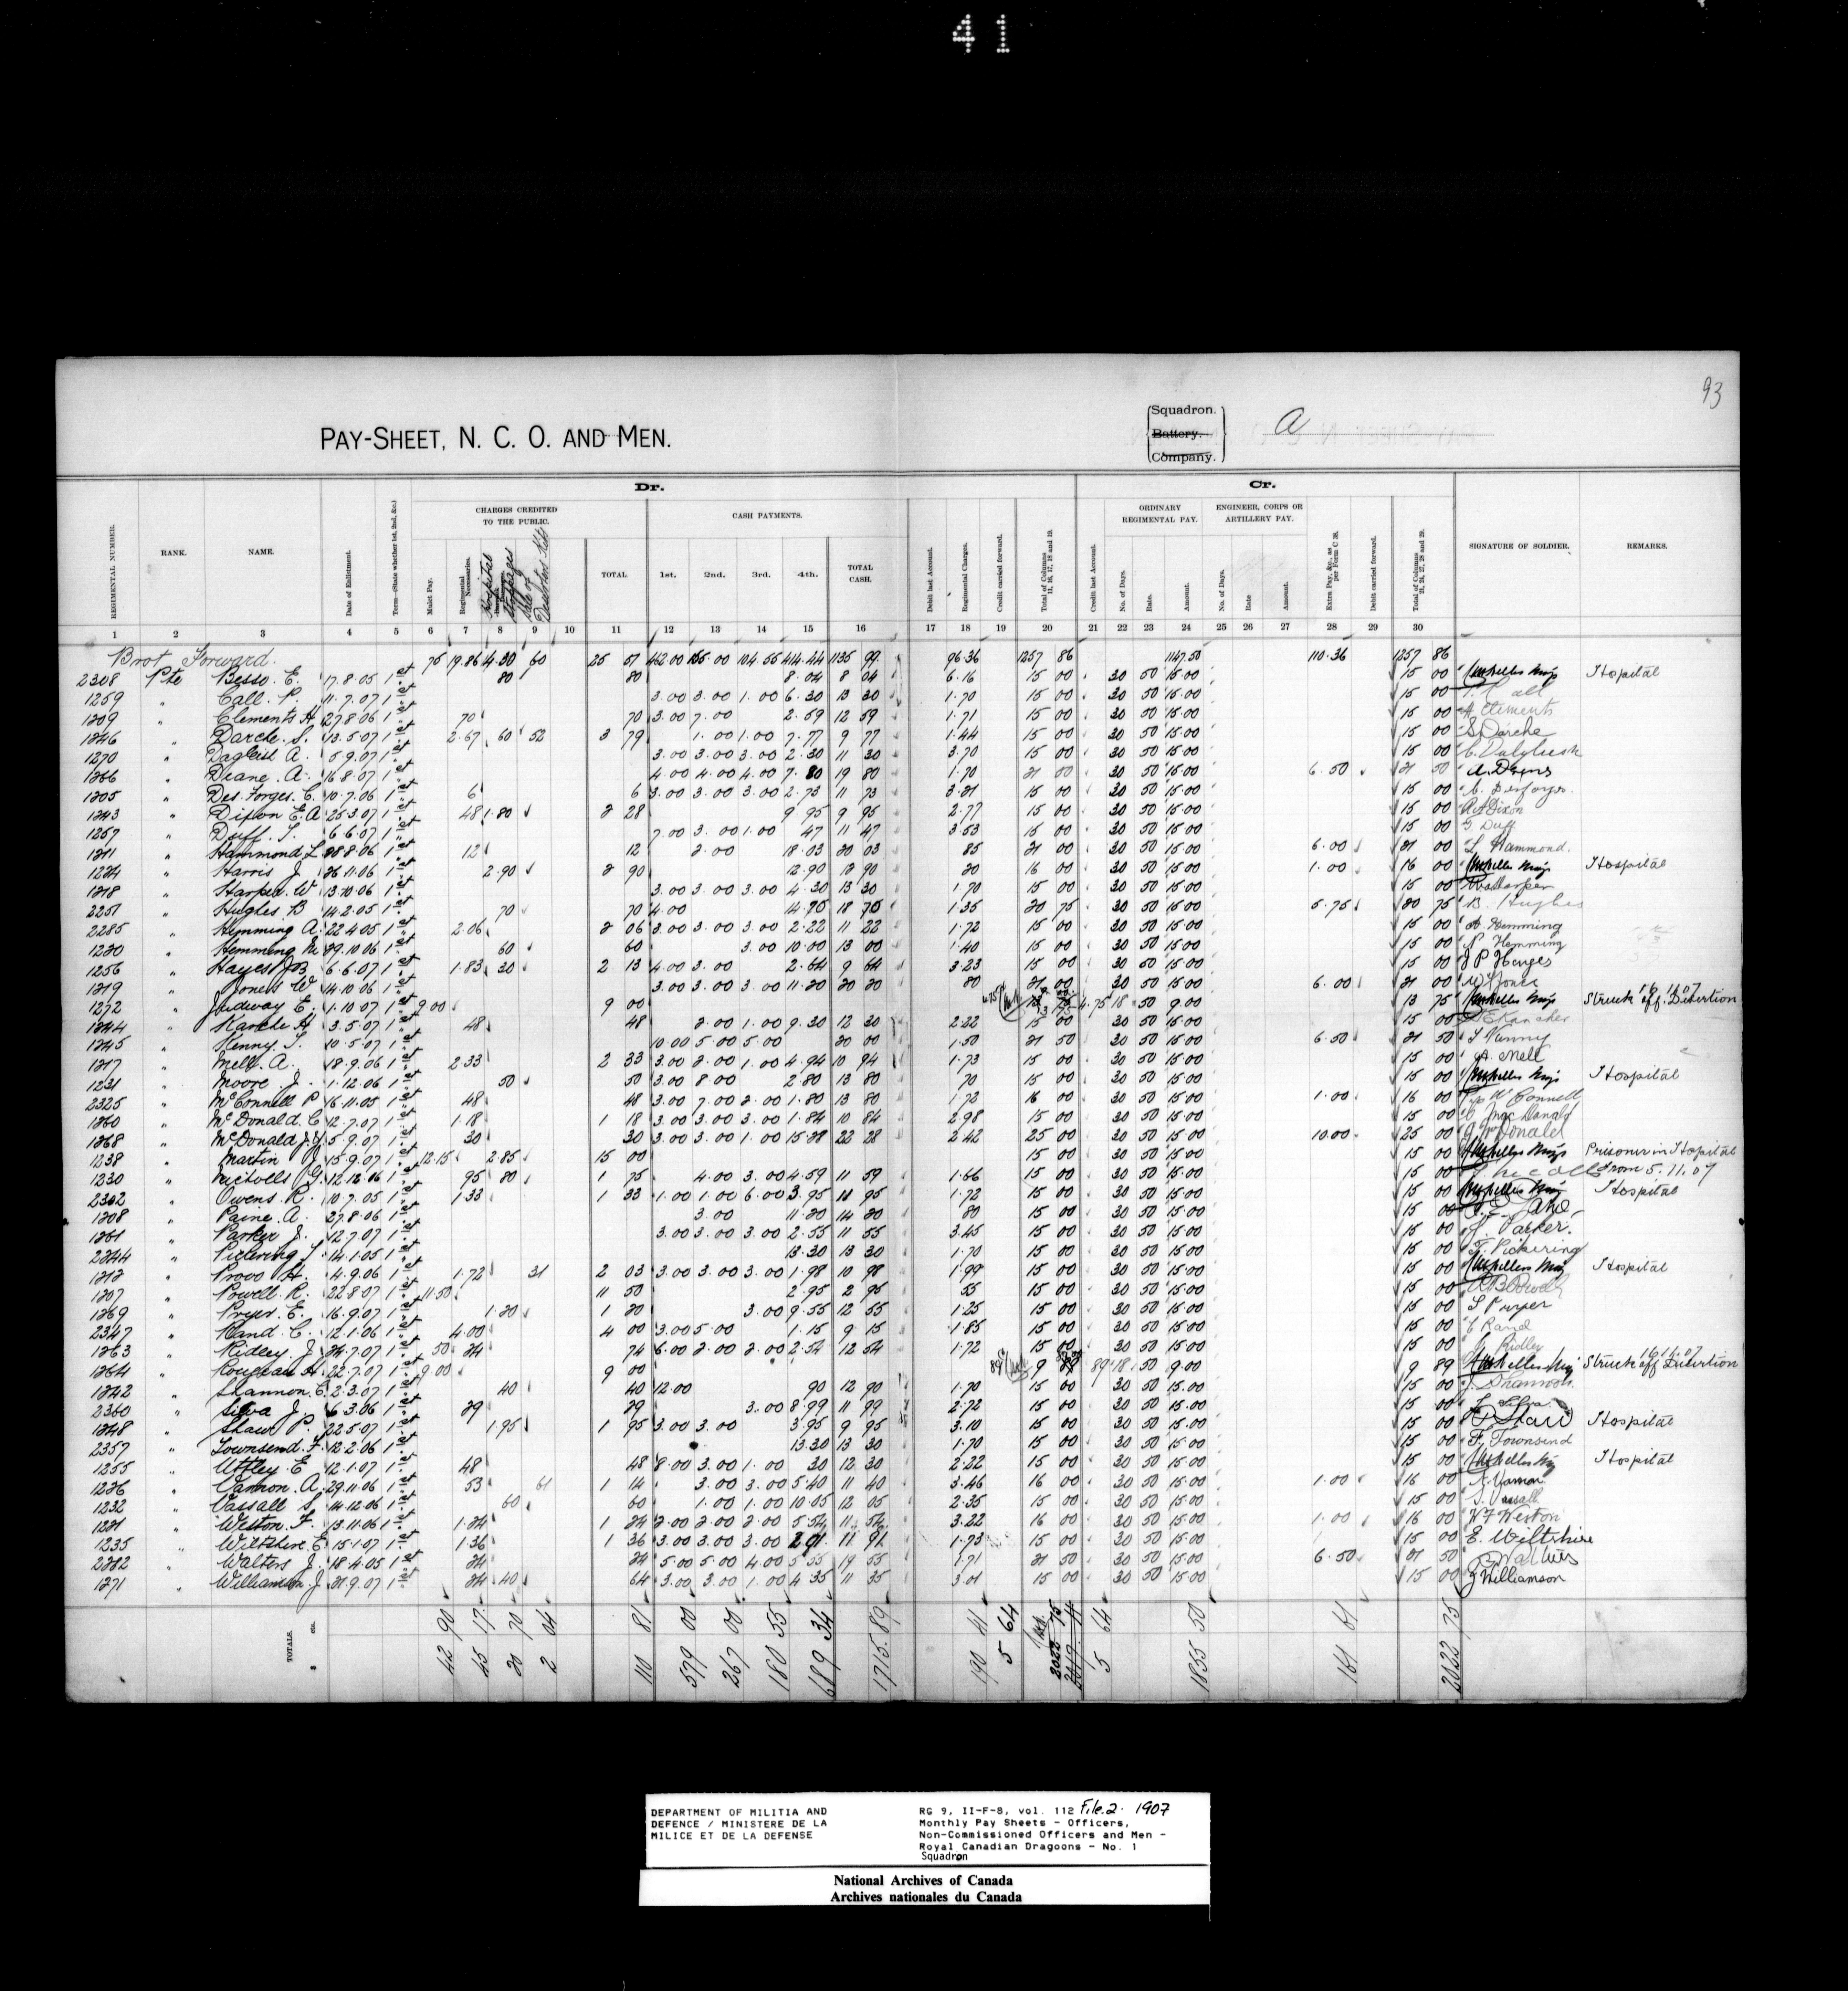 41
93
PAY-SHEET, N. C. O. AND MEN.
Squadron. Battery. Company. A
Dr.
Cr.
CHARGES CREDITED TO THE PUBLIC.
CASH PAYMENTS.
ORDINARY REGIMENTAL PAY.
ENGINEER, CORPS OR ARTILLERY PAY.
REGIMENTAL NUMBER. RANK. NAME. Date of Enlistment. Term—State whether 1st, 2nd, &c.) Mulct Pay. Regimental Necessaries. Hospital Stoppages TOTAL 1st. 2nd. 3rd. 4th. TOTAL CASH. Debit last Account. Regimental Charges. Credit carried forward. Total of Columns 11, 16, 17, 18 and 19. Credit last Account. No. of Days. Rate. Amount. No. of Days. Rate Amount. Extra Pay, &c., as per Form C 38. Debit carried forward. Total of Columns 21, 24, 27, 28 and 29. SIGNATURE OF SOLDIER. REMARKS.
1 2 3 4 5 6 7 8 9 10 11 12 13 14 15 16 17 18 19 20 21 22 23 24 25 26 27 28 29 30
Brot Forward. 75 19.86 4.30 60 25 51 462 00 165.00 104.55 414.44 1135 99 96.36 1257 86 1147.50 110.36 1257 86
2308 Pte Besso. E. 17.8.05 1st 80 80 8.04 8 04 6.16 15 00 30 50 15.00 15 00 Hospital
1259 " Call. P. 11.7.07 1st 3.00 3.00 1.00 6.30 13 30 1.70 15 00 30 50 15.00 15 00
1209 " Clements H 27.8.06 1st 70 70 3.00 7.00 2.59 12 59 1.71 15 00 30 50 15.00 15 00 Clements
1246 " Darche. S. 13.5.07 1st 2.67 60 52 3 79 1.00 1.00 7.77 9 77 1.44 15 00 30 50 15.00 15 00 S Darche
1270 " A. 5.9.07 1st 3.00 3.00 3.00 2.30 11 30 3.70 15 00 30 50 15.00 15 00
1266 " Diane. A. 16.8.07 1st 4.00 4.00 4.00 7.80 19 80 1.70 21 50 30 50 15.00 6.50 21 50
1205 " Des. Forges. C. 10.7.06 1st 6 6 3.00 3.00 3.00 2.73 11 73 3.21 15 00 30 50 15.00 15 00
1243 " Dixon E.A 25.3.07 1st 48 1.80 2 28 9 95 9 95 2.77 15 00 30 50 15.00 15 00 Dixon
1257 " Duff. 6.6.07 1st 7.00 3.00 1.00 47 11 47 3.53 15 00 30 50 15.00 15 00 G. Duff
1211 " Hammond. L 28.8.06 1st 12 12 2.00 18.03 20 03 85 21 00 30 50 15.00 6.00 21 00 L Hammond.
1224 " Harris J 26.11.06 1st 2.90 2 90 12.90 12 90 20 16 00 30 50 15.00 1.00 16 00 Hospital
1218 " Harper. W 13.10.06 1st 3.00 3.00 3.00 4.30 13 30 1.70 15 00 30 50 15.00 15 00 Harper
2251 " Hughes B 14.2.05 1st 70 70 4.00 14.70 18 70 1.35 20 75 30 50 15.00 5.75 20 75 B. Hughes
2285 " Hemming A. 22.4.05 1st 2.06 2 06 3.00 3.00 3.00 2.22 11 22 1.72 15 00 30 50 15.00 15 00 A Hemming
1220 " Hemming 29.10.06 1st 60 60 3.00 10.00 13 00 1.40 15 00 30 50 15.00 15 00 Hemming
1256 " Hayes 6.6.07 1st 1.83 30 2 13 4.00 3.00 2.64 9 64 3.23 15 00 30 50 15.00 15 00 J P Hayes
1219 " Jones W 14.10.06 1st 3.00 3.00 3.00 11.20 20 20 80 21 00 30 50 15.00 6.00 21 00 W Jones
1272 " Judway E. 1.10.07 1st 9 00 9 00 4.75 4.75 18 50 9.00 13 75 Struck off. Desertion 16.11.07
1244 " H 3.5.07 1st 48 48 2.00 1.00 9.30 12 30 2.22 15 00 30 50 15.00 15 00
1245 " Kenny. 10.5.07 1st 10.00 5.00 5.00 20 00 1.50 21 50 30 50 15.00 6.50 21 50 Kenny
1217 " Mell. A. 18.9.06 1st 2.33 2 33 3.00 2.00 1.00 4.94 10 94 1.73 15 00 30 50 15.00 15 00 A. Mell
1231 " Moore. J. 1.12.06 1st 50 50 3.00 8.00 2.80 13 80 70 15 00 30 50 15.00 15 00 Hospital
2325 " McConnell P 16.11.05 1st 48 48 3.00 7.00 2.00 1.80 13 80 1.72 16 00 30 50 15.00 1.00 16 00
1260 " McDonald. C 12.7.07 1st 1.18 1 18 3.00 3.00 3.00 1.84 10 84 2.98 15 00 30 50 15.00 15 00 C MacDonald
1268 " McDonald J.Y. 5.9.07 1st 30 30 3.00 3.00 1.00 15.28 22 28 2.42 25 00 30 50 15.00 10.00 25 00 McDonald
1238 " Martin J 15.9.07 1st 12.15 2.85 15 00 15 00 30 50 15.00 15 00 Prisoner in Hospital
1230 " Nicholls G. 12.12.06 1st 95 80 1 75 4.00 3.00 4.59 11 59 1.66 15 00 30 50 15.00 15 00 from 5.11.07
2302 " Owens. R. 10.7.05 1st 1.33 1 33 1.00 1.00 6.00 3.95 11 95 1.72 15 00 30 50 15.00 15 00 Hospital
1208 " Paine. A. 27.8.06 1st 3.00 11.20 14 20 80 15 00 30 50 15.00 15 00
1261 " Parker J. 12.7.07 1st 3.00 3.00 3.00 2.55 11 55 3.45 15 00 30 50 15.00 15 00 J. Parker.
2244 " Pickering 14.1.05 1st 13.30 13 30 1.70 15 00 30 50 15.00 15 00 Pickering
1212 " Provo H. 4.9.06 1st 1.72 31 2 03 3.00 3.00 3.00 1.98 10 98 1.99 15 00 30 50 15.00 15 00 Hospital
1207 " Powell. R. 22.8.07 1st 11.50 11 50 2.95 2 95 55 15 00 30 50 15.00 15 00 Powell
1269 " Pryer. E. 16.9.07 1st 1.20 1 20 3.00 9.55 12 55 1.25 15 00 30 50 15.00 15 00
2347 " Rand C. 12.1.06 1st 4.00 4 00 3.00 5.00 1.15 9 15 1.85 15 00 30 50 15.00 15 00 C Rand
1263 " Ridley. J. 24.7.07 1st 50 24 74 6.00 2.00 2.00 2.54 12 54 1.72 15 00 30 50 15.00 15 00 Ridley
1264 " Rouleau H. 22.7.07 1st 9 00 9 00 89 9 89 89 18 50 9.00 9 89 Struck off Desertion 16.11.07
1242 " Shannon. C. 2.3.07 1st 40 40 12.00 90 12 90 1.70 15 00 30 50 15.00 15 00 Shannon
2360 " Silva J. 6.3.06 1st 29 29 3.00 8.99 11 99 2.72 15 00 30 50 15.00 15 00 Silva
1248 " Shaw P. 22.5.07 1st 1.95 1 95 3.00 3.00 3.95 9 95 3.10 15 00 30 50 15.00 15 00 P Shaw Hospital
2357 " Townsend. F. 12.2.06 1st 13.30 13 30 1.70 15 00 30 50 15.00 15 00 F. Townsend
1255 " Uttley. E 12.1.07 1st 48 48 8.00 3.00 1.00 30 12 30 2.22 15 00 30 50 15.00 15 00 Hospital
1226 " Vannon. A. 29.11.06 1st 53 61 1 14 3.00 3.00 5.40 11 40 3.46 16 00 30 50 15.00 1.00 16 00
1232 " Vassall S. 14.12.06 1st 60 60 1.00 1.00 10.05 12 05 2.35 15 00 30 50 15.00 15 00 Vassall
1221 " Weston. F. 13.11.06 1st 1.24 1 24 2.00 2.00 2.00 5.54 11 54 3.22 16 00 30 50 15.00 1.00 16 00 Weston
1235 " Wiltshire. E. 15.1.07 1st 1.36 1 36 3.00 3.00 3.00 2.91 11 91 1.73 15 00 30 50 15.00 15 00 E. Wiltshire
2282 " Walters J. 18.4.05 1st 24 24 5.00 5.00 4.00 5.55 19 55 1.71 21 50 30 50 15.00 6.50 21 50
1271 " Williamson. J 21.9.07 1st 24 40 64 3.00 3.00 1.00 4.35 11 35 3.01 15 00 30 50 15.00 15 00 J Williamson
TOTALS. 42 90 45 17 20 70 2 04 110 81 579 00 267 00 180 55 689 34 1715.89 190 41 5 64 2022 75 5 64 1855 50 161 61 2022 75
DEPARTMENT OF MILITIA AND
DEFENCE / MINISTERE DE LA
MILICE ET DE LA DEFENSE
RG 9, II-F-8, vol. 112 File.2. 1907
Monthly Pay Sheets - Officers,
Non-Commissioned Officers and Men -
Royal Canadian Dragoons - No. 1
Squadron
National Archives of Canada
Archives nationales du Canada